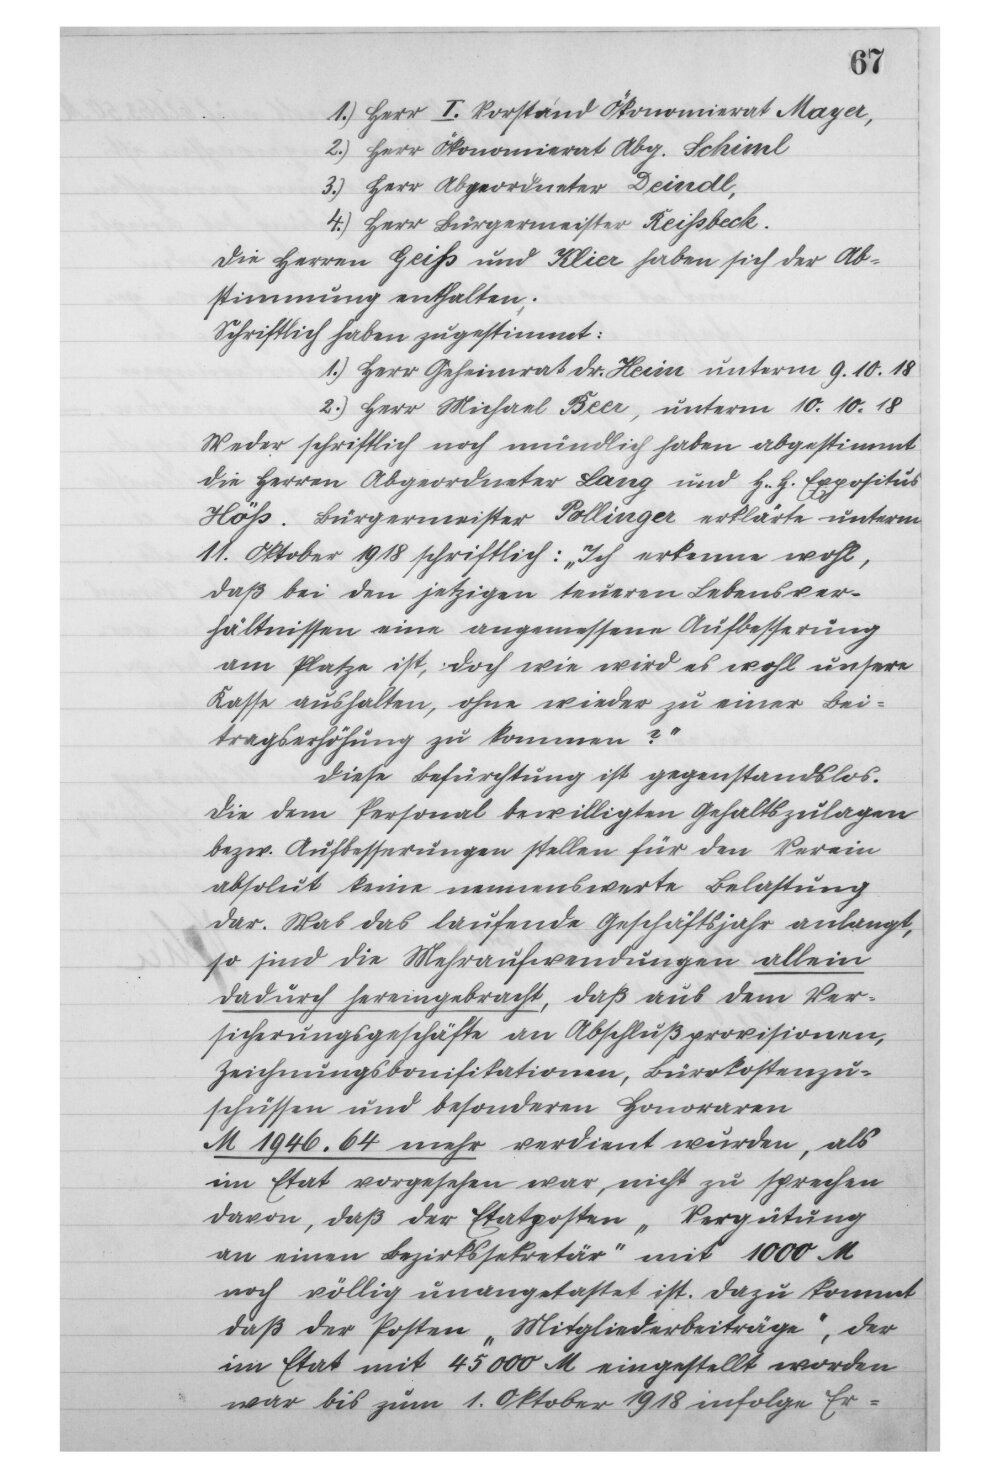 67
1.) Herr I. Vorstand Ökonomierat Mayer,
2.) Herr Ökonomierat Abg. Schiml
3.) Herr Abgeordneter Deindl,
4.) Herr Bürgermeister Reißbeck.
Die Herren Geiß und Klier haben sich der Ab=
stimmung enthalten.
Schriftlich haben zugestimmt:
1.) Herr Geheimrat Dr. Heim unterm 9.10.18
2.) Herr Michael Beer, unterm 10.10.18
Weder schriftlich noch mündlich haben abgestimmt
die Herren Abgeordneter Lang und H. H. Expositus
Höß. Bürgermeister Pollinger erklärte unterm
11. Oktober 1918 schriftlich: „Ich erkenne wohl,
daß bei den jetzigen teueren Lebensver-
hältnissen eine angemessene Aufbesserung
am Platze ist, doch wie wird es wohl unsere
Kasse aushalten, ohne wieder zu einer Bei=
tragserhöhung zu kommen?"
Diese Befürchtung ist gegenstandslos.
Die dem Personal bewilligten Gehaltszulagen
bezw. Aufbesserungen stellen für den Verein
absolut keine nennenswerte Belastung
dar. Was das laufende Geschäftsjahr anlangt,
so sind die Mehraufwendungen allein
dadurch hereingebracht, daß aus dem Ver-
sicherungsgeschäfte an Abschlußprovisionen,
Zeichnungsbonifikationen, Bürokostenzu=
schüssen und besonderen Honoraren
M 1946.64 mehr verdient wurden, als
im Etat vorgesehen war, nicht zu sprechen
davon, daß der Etatposten „Vergütung
an einen Bezirkssekretär" mit 1000 M
noch völlig unangetastet ist. Dazu kommt
daß der Posten „Mitgliederbeiträge", der
im Etat mit 45000 M eingestellt worden
war bis zum 1. Oktober 1918 infolge Er=